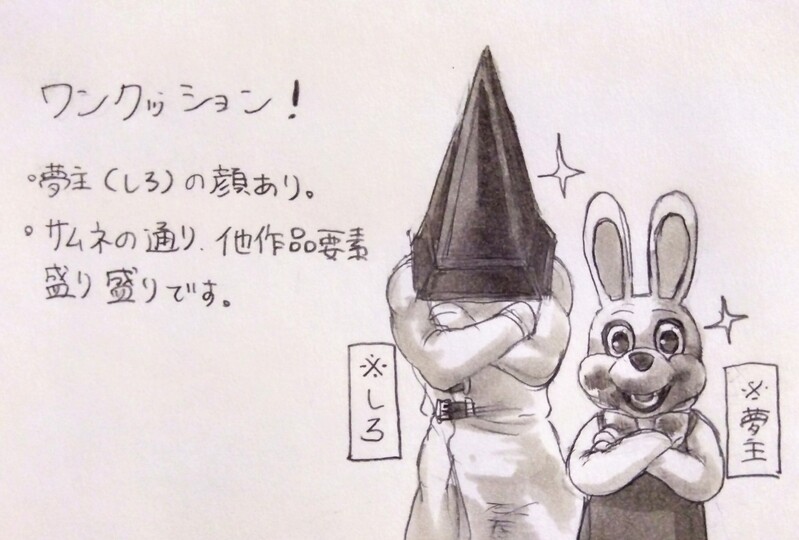 ワンクッション!
・夢主(しろ)の顔あり。
・サムネの通り、他作品要素
盛り盛りです。
※しろ
※夢主